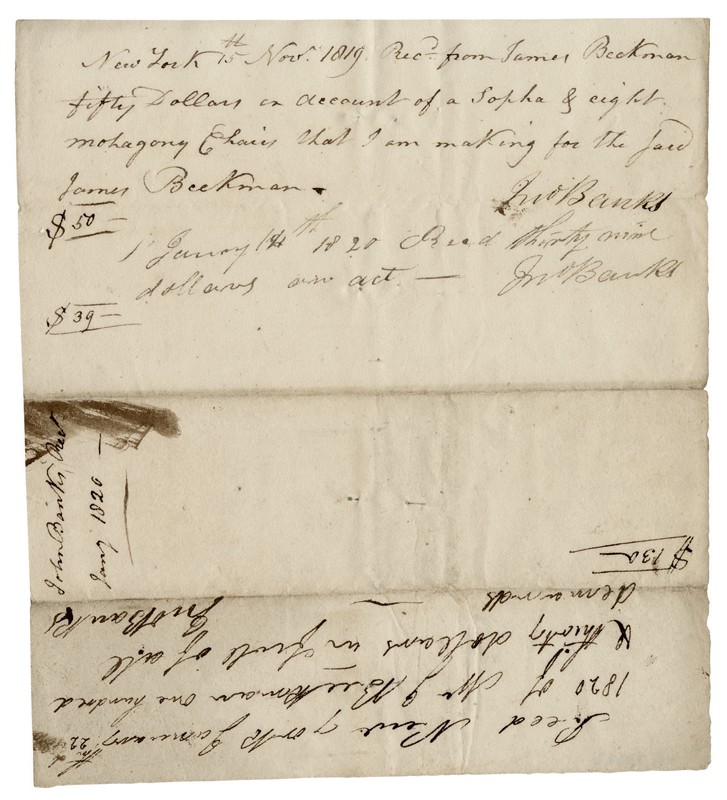 New York 15th Novr. 1819. Recd. from James Beekman
fifty Dollars on account of a Sopha & eight
mohagony Chairs that I am making for the said
James Beekman.
Jno Banks
$ 50 —
Janry 14th 1820 Recd thirty nine
dollars on act. —
Jno Banks
$ 39 —
John Banks Rect
Jany 1820 —
Recd New york January 22nd
1820 of Mr J Beekman one hundred
& thirty dollars in full of all
demands
Jno Banks
$ 130